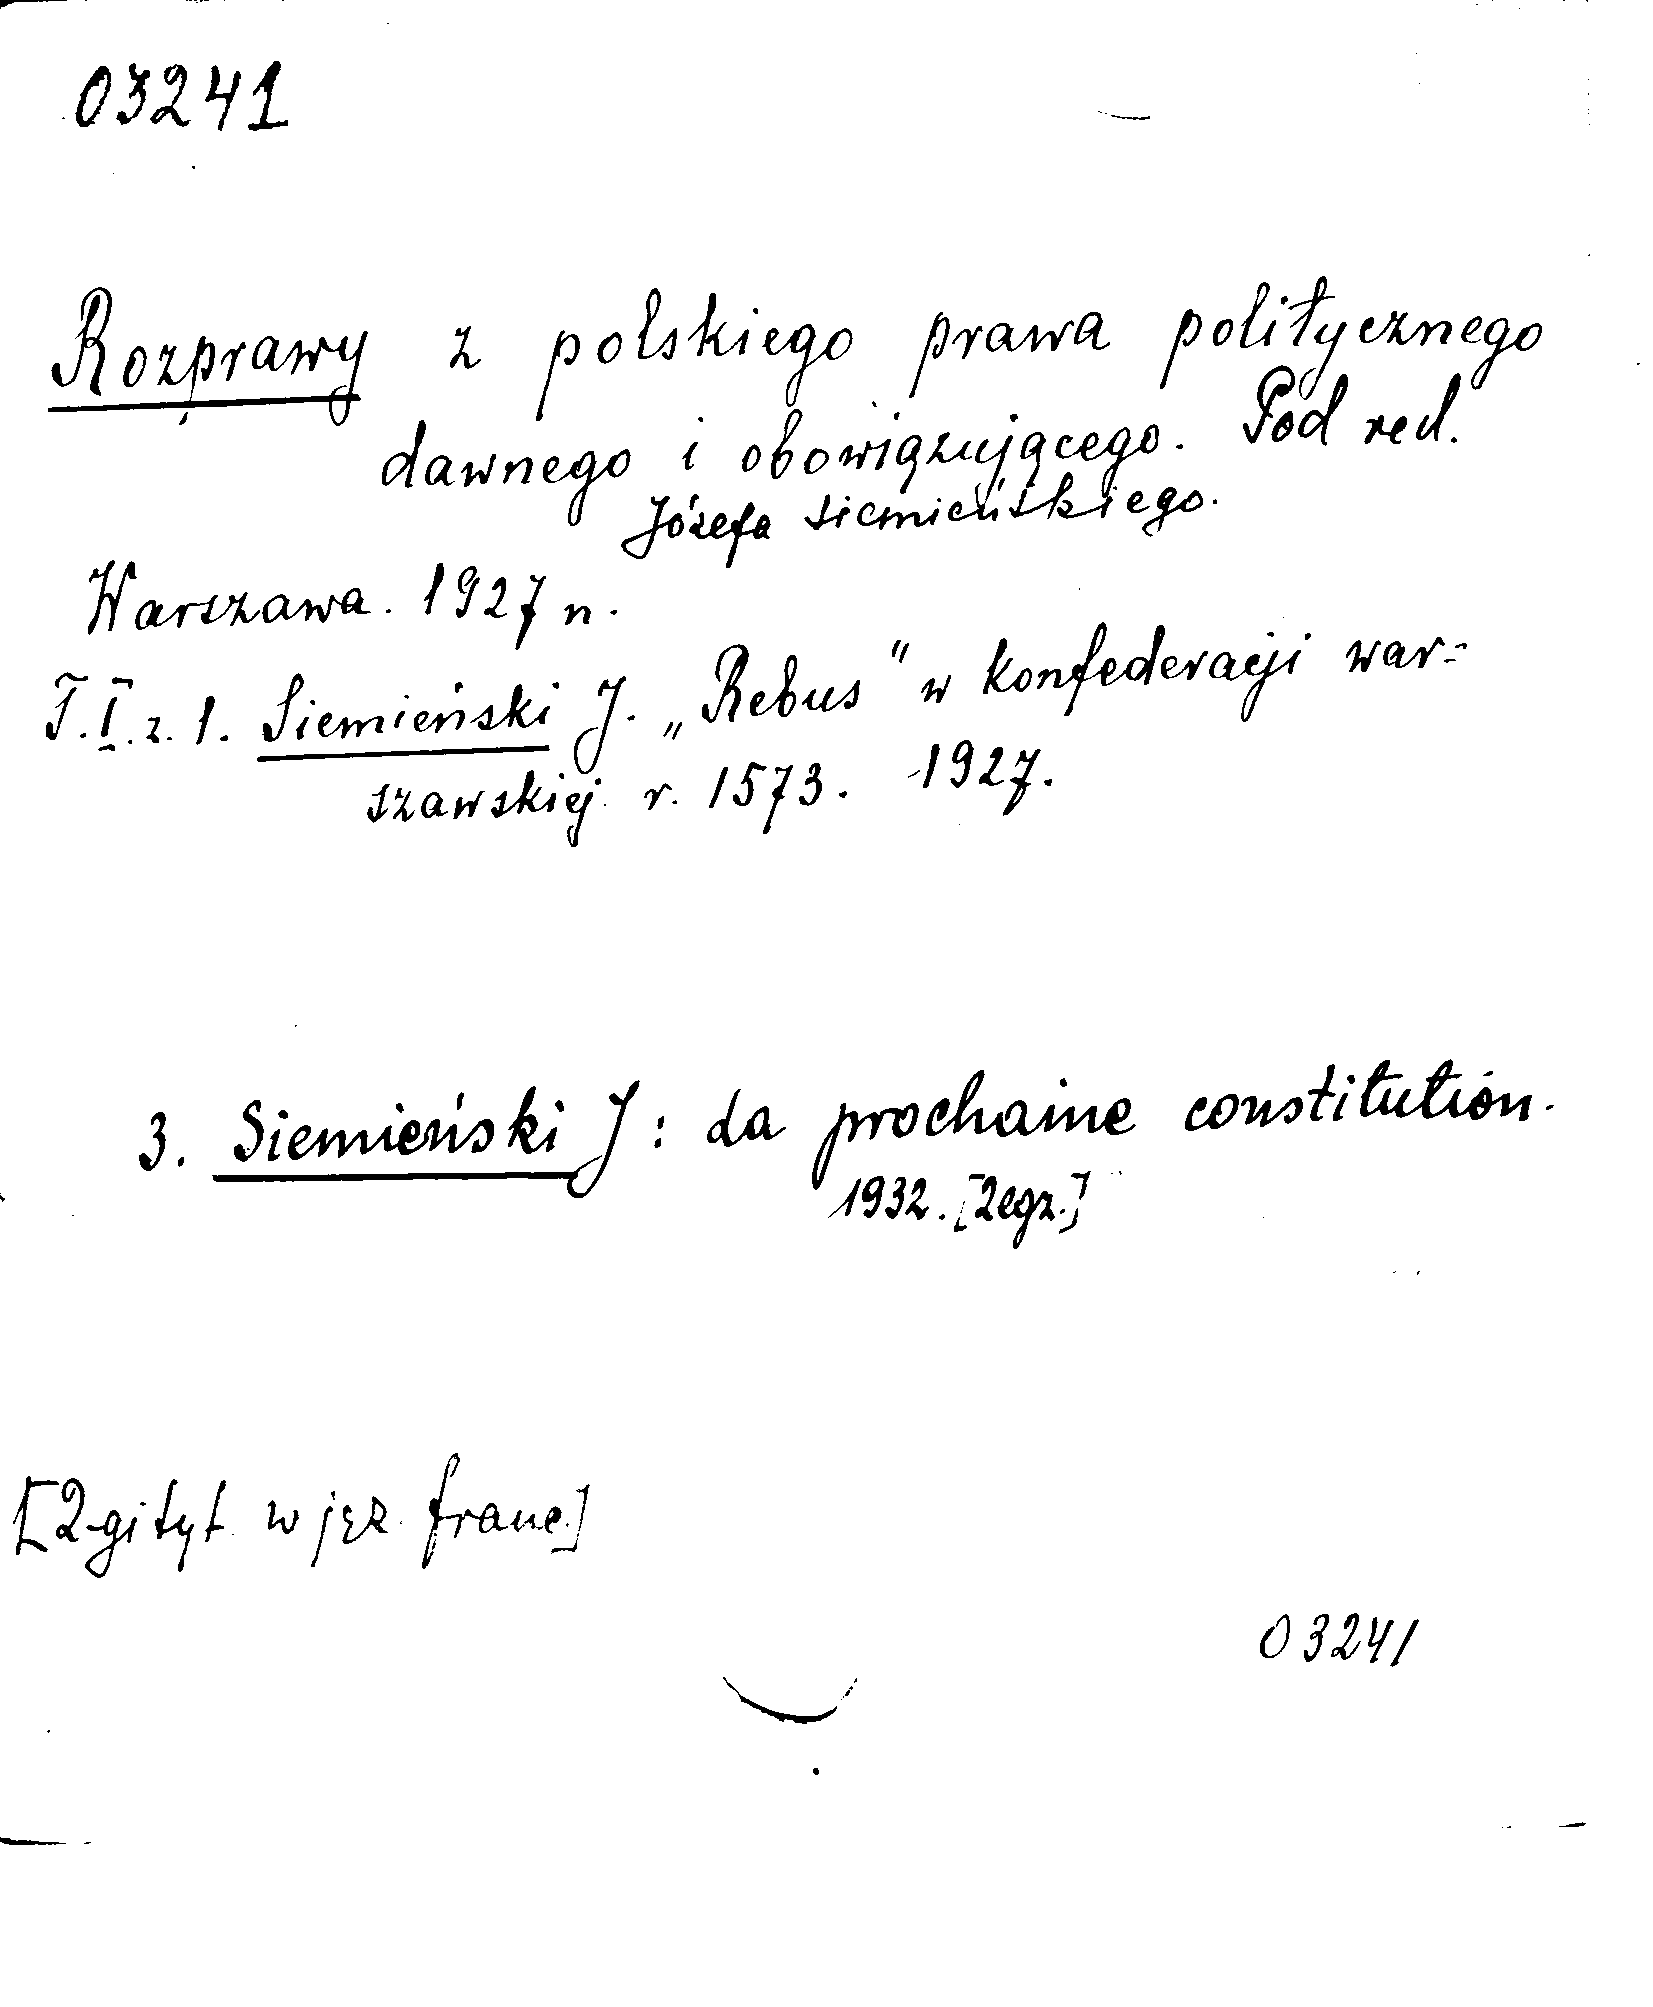 03241
Rozprawy z polskiego prawa politycznego
dawnego i obowiązującego. Pod red.
Józefa Siemieńskiego.
Warszawa. 1927 n.
T.I. z. 1. Siemieński J. „Rebus" w konfederacji war-
szawskiej r. 1573. 1927.
3. Siemieński J: da prochaine constitution.
1932. [2egz.]
[2-gi tyt. w jęz. franc.]
03241